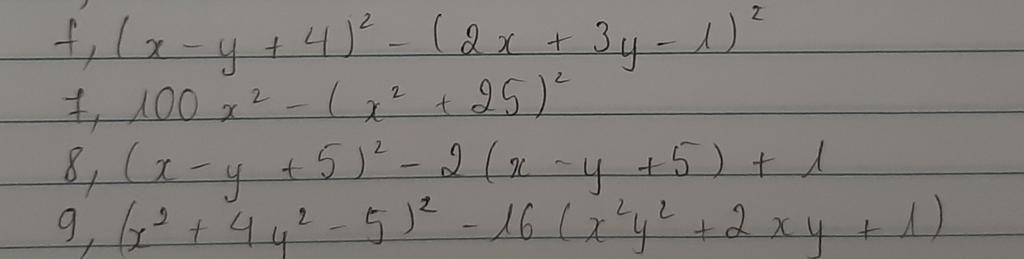 f, (x - y + 4)² - (2x + 3y - 1)²
7, 100x² - (x² + 25)²
8, (x - y + 5)² - 2(x - y + 5) + 1
9, (x² + 4y² - 5)² - 16(x²y² + 2xy + 1)